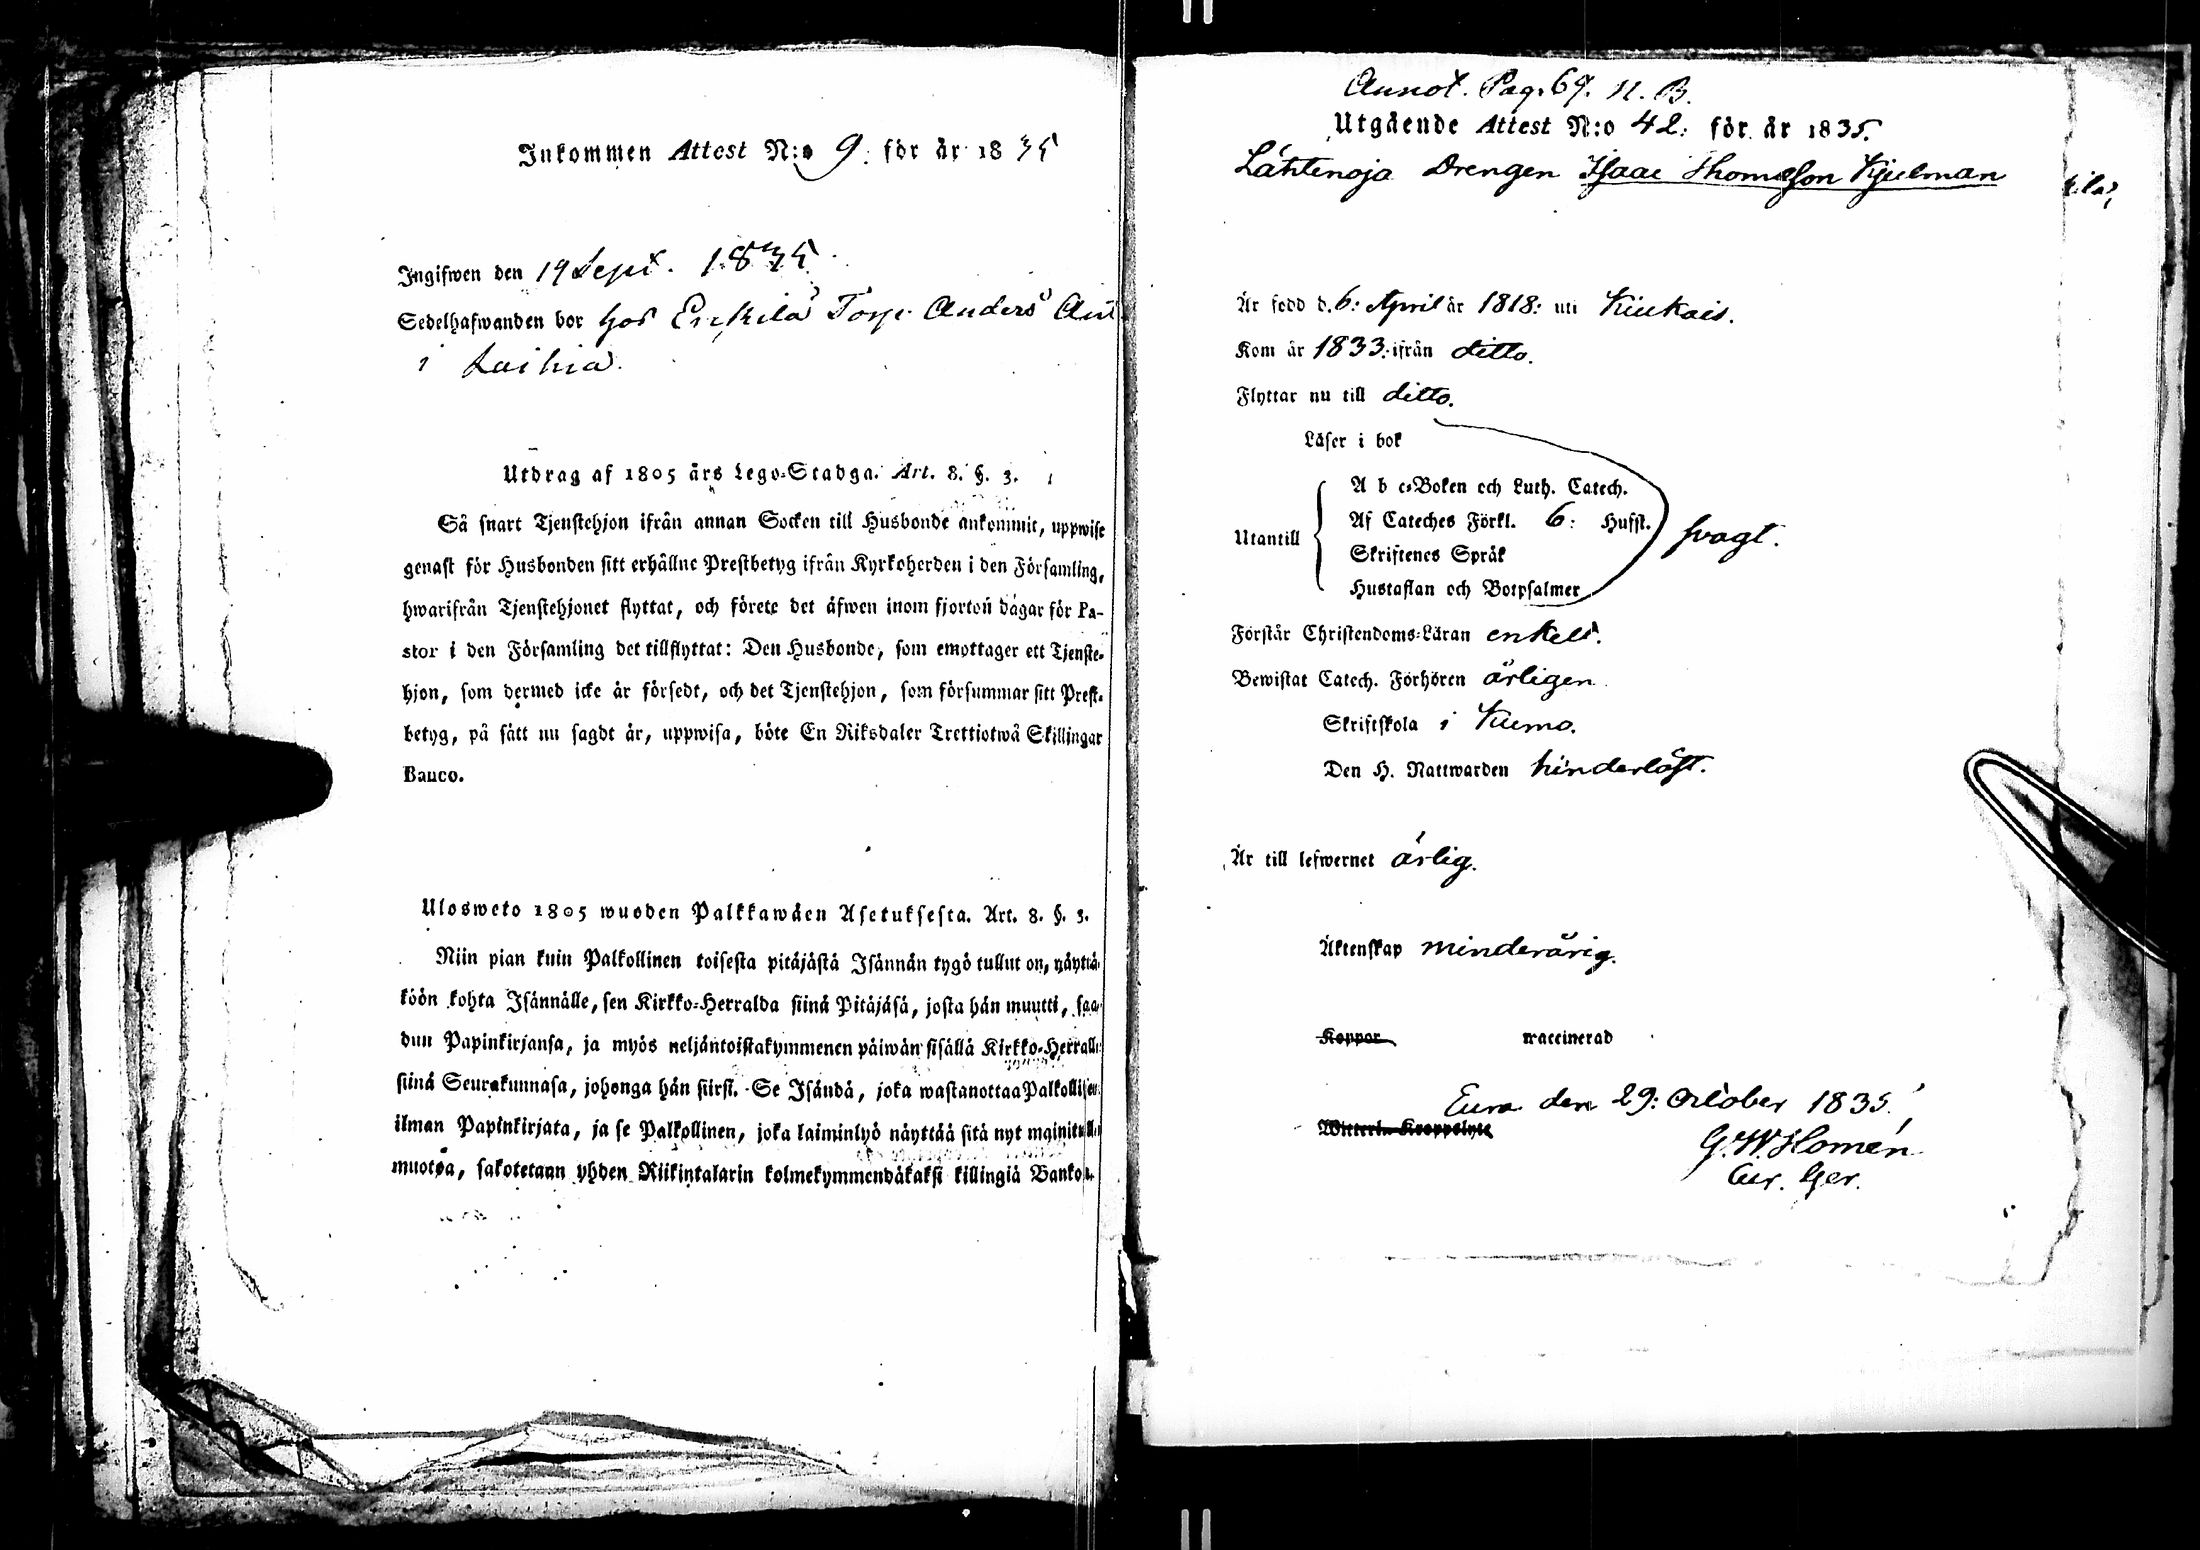 Inkommen Attest N:o 9. för år 1835
Ingifwen den 19 Sept. 1835.
Sedelhafwanden bor hos Erkilä Torp. Anders
i Laihia.
Utdrag af 1805 års Lego-Stadga. Art. 8. §. 3.
Så snart Tjenstehjon ifrån annan Socken till Husbonde ankommit, uppwise
genast för Husbonden sitt erhållne Prestbetyg ifrån Kyrkoherden i den Församling,
hwarifrån Tjenstehjonet flyttat, och förete det äfwen inom fjorton dagar för Pa-
stor i den Församling det tillflyttat: Den Husbonde, som emottager ett Tjenste-
hjon, som dermed icke är försedt, och det Tjenstehjon, som försummar sitt Prest-
betyg, på sätt nu sagdt är, uppwisa, böte En Riksdaler Trettiotwå Skillingar
Banco.
Ulosweto 1805 wuoden Palkkawäen Asetuksesta. Art. 8. §. 3.
Niin pian kuin Palkollinen toisesta pitäjästä Isännän tygö tullut on, näyttä-
köön kohta Isännälle, sen Kirkko-Herralda siinä Pitäjäsä, josta hän muutti, saa-
dun Papinkirjansa, ja myös neljäntoistakymmenen päiwän sisällä Kirkko-Herralle
siinä Seurakunnasa, johonga hän siirsi. Se Isändä, joka wastanottaa Palkollisen
ilman Papinkirjata, ja se Palkollinen, joka laiminlyö näyttää sitä nyt mainitulla
muotoa, sakotetaan yhden Riikintalarin kolmekymmendäkaksi killingiä Bankosa.
Annot. Pag. 69. N. B.
Utgående Attest N:o 42: för år 1835.
Lähtenoja Drengen Isaac Thomasson Kjulman
Är född d. 6: April år 1818: uti Kiukais.
Kom år 1833: ifrån ditto.
Flyttar nu till ditto.
Läser i bok
A b c-Boken och Luth. Catech.
Af Cateches Förkl. 6: Hufst.
Utantill
svagt.
Skriftenes Språk
Hustaflan och Botpsalmer
Förstår Christendoms-Läran enkelt.
Bewistat Catech. Förhören årligen.
Skriftskola i Kumo.
Den H. Nattwarden hinderlöst.
Är till lefwernet ärlig.
Äktenskap minderårig.
Koppor waccinerad
Eura den 29: October 1835.
Witterl. Kroppslyte
G. W. Homén
Cur. Ger.